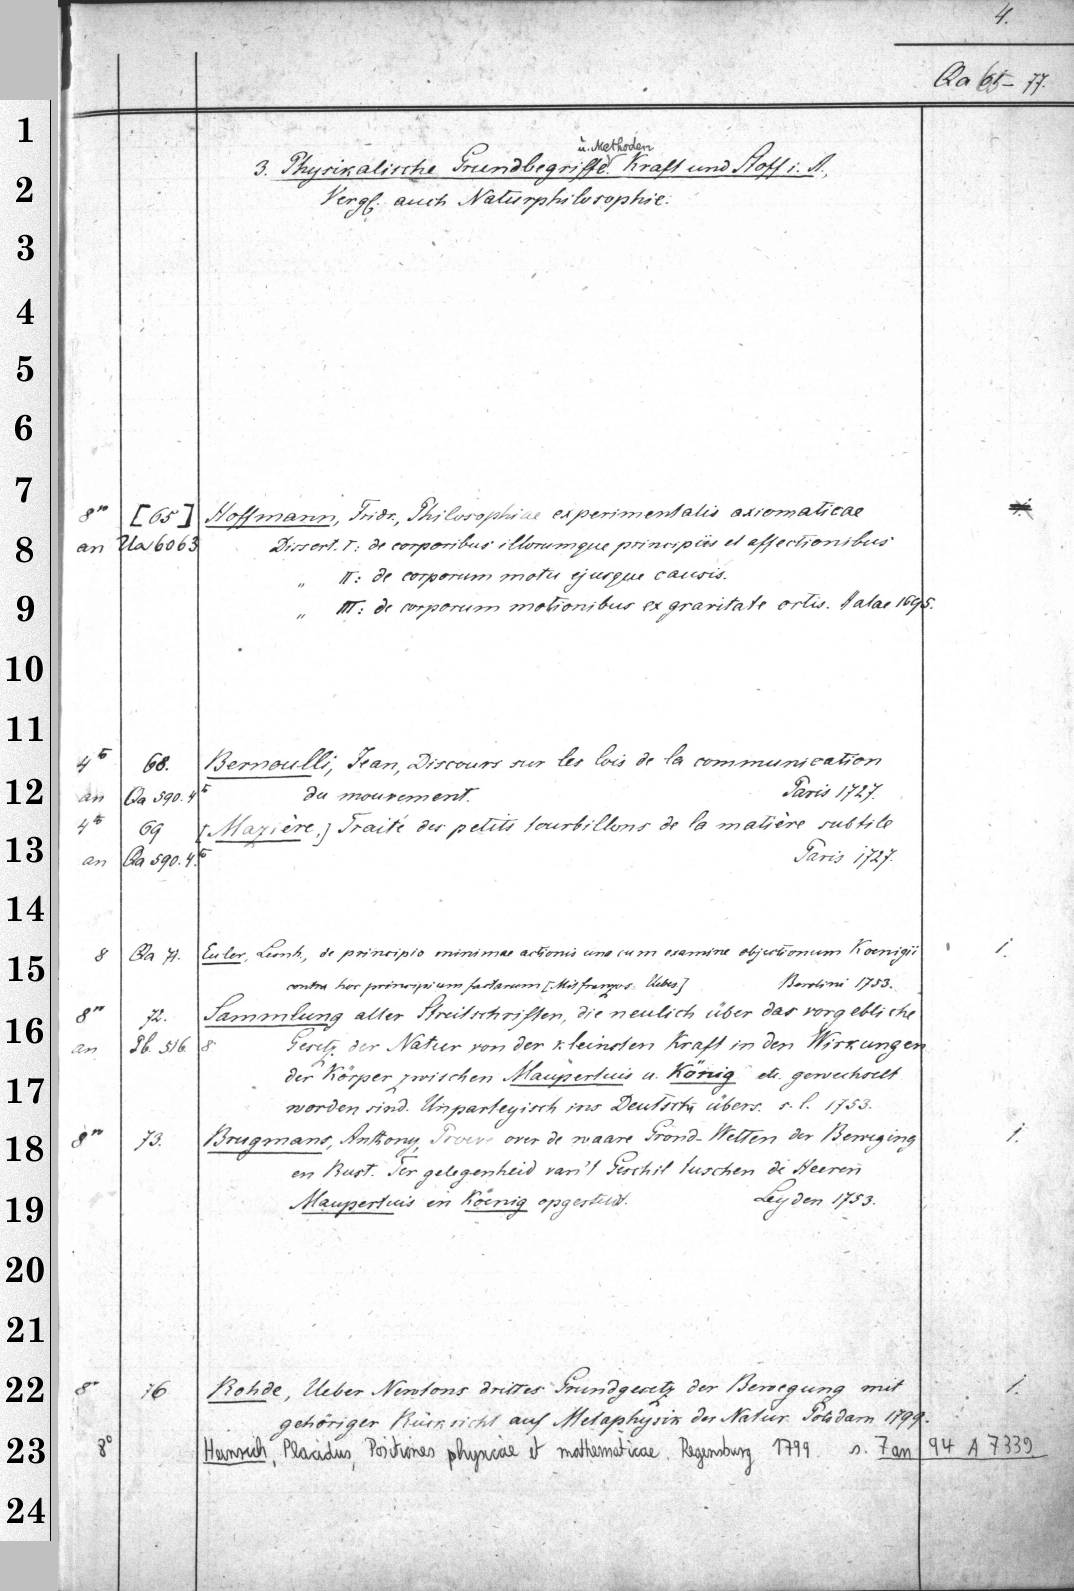 4.
Qa 65-77.
ü. Methoden
3. Physikalische Grundbegriffe. Kraft und Stoff i. A.,
Vergl. auch Naturphilosophie.
1
2
3
4
5
6
7
8
9
10
11
12
13
14
15
16
17
18
19
20
21
22
23
24
8° [65] Hoffmann, Fridr., Philosophiae experimentalis axiomaticae
an Ua 6063 Dissert. I: de corporibus illorumque principiis et affectionibus
„ II: de corporum motu ejusque causis.
„ III: de corporum motionibus ex gravitate ortis. Halae 1695.
4to 68. Bernoulli, Jean, Discours sur les lois de la communication
an Qa 590. 4to du mouvement. Paris 1727.
4to 69 [Mazière.] Traité des petits tourbillons de la matière subtile
an Qa 590. 4to Paris 1727.
8 Qa 71. Euler, Leonh., de principio minimae actionis una cum examine objectionum Koenigii 1.
contra hoc principium factarum [Mit französ. Uebers.] Berolini 1753.
8° 72. Sammlung aller Streitschriften, die neulich über das vorgebliche
an Pb. 516. 8 Gesetz der Natur von der kleinsten Kraft in den Wirkungen
der Körper zwischen Maupertuis u. König etc. gewechselt
worden sind. Unparteyisch ins Deutsche übers. s. l. 1753.
8° 73. Brugmans, Anthony, Proeve over de waare Grond-Wetten der Beweging 1.
en Rust. Ter gelegenheid van't Geschil tusschen de Heeren
Maupertuis en Koenig opgesteld. Leyden 1753.
8° 76 Rohde, Ueber Newtons drittes Grundgesetz der Bewegung mit 1.
gehöriger Rücksicht auf Metaphysik der Natur. Potsdam 1799.
8° Heinrich, Placidus, Positiones physicae et mathematicae. Regensburg 1799. s. 7 an 94 A 7339